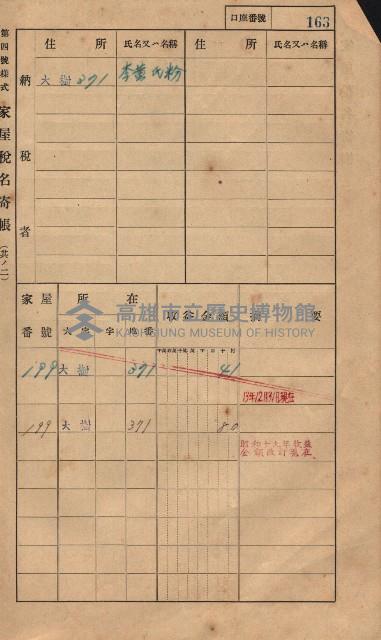 口座番號 163
第四號樣式 家屋稅名寄帳 (共ノ二)
納稅者
住所 氏名又ハ名稱 住所 氏名又ハ名稱
大樹 371 李黃氏粉
家屋番號 所在 大字 字 地番 收益金額 摘要
高雄市立歷史博物館
KAOHSIUNG MUSEUM OF HISTORY
199 大樹 371 41
13年12月31日現在
199 大樹 371 80
昭和十九年收益
金額改訂現在